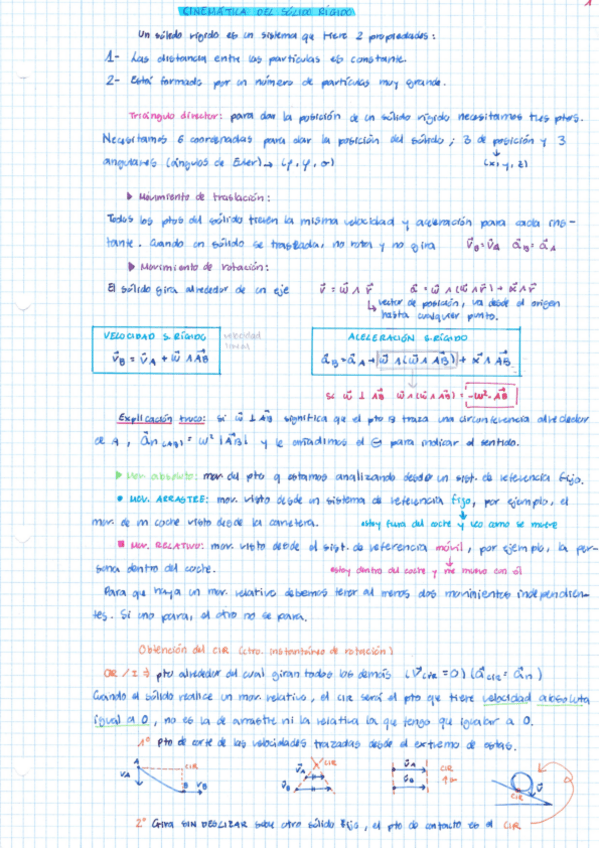 1
CINEMÁTICA DEL SÓLIDO RÍGIDO
Un sólido rígido es un sistema que tiene 2 propiedades:
1- Las distancia entre las partículas es constante.
2- Está formado por un número de partículas muy grande.
Triángulo director: para dar la posición de un sólido rígido necesitamos tres ptos.
Necesitamos 6 coordenadas para dar la posición del sólido; 3 de posición y 3
angulares (ángulos de Euler) → (φ, ψ, σ) (x, y, z)
▶ Movimiento de traslación:
Todos los ptos del sólido tienen la misma velocidad y aceleración para cada ins-
tante. Cuando un sólido se traslada, no rota y no gira v⃗B = v⃗A a⃗B = a⃗A
▶ Movimiento de rotación:
El sólido gira alrededor de un eje v⃗ = ω⃗ ∧ r⃗ a⃗ = ω⃗ ∧ (ω⃗ ∧ r⃗) + α⃗ ∧ r⃗
↳ vector de posición, va desde el origen
hasta cualquier punto.
VELOCIDAD S. RÍGIDO velocidad lineal
v⃗B = v⃗A + ω⃗ ∧ AB⃗
ACELERACIÓN S. RÍGIDO
a⃗B = a⃗A + ω⃗ ∧ (ω⃗ ∧ AB⃗) + α⃗ ∧ AB⃗
si ω⃗ ⊥ AB⃗ ω⃗ ∧ (ω⃗ ∧ AB⃗) = -ω²·AB⃗
Explicación truco: si ω⃗ ⊥ AB⃗ significa que el pto B traza una circunferencia alrededor
de A, a⃗n (AB) = ω² |AB⃗| y le añadimos el ⊖ para indicar el sentido.
▶ Mov. absoluto: mov. del pto q estamos analizando desde un sist. de referencia fijo.
• MOV. ARRASTRE: mov. visto desde un sistema de referencia fijo, por ejemplo, el
mov. de un coche visto desde la carretera. estoy fuera del coche y veo como se mueve
■ MOV. RELATIVO: mov. visto desde el sist. de referencia móvil, por ejemplo, la per-
sona dentro del coche. estoy dentro del coche y me muevo con él
Para que haya un mov. relativo debemos tener al menos dos movimientos independien-
tes. Si uno para, el otro no se para.
Obtención del CIR (ctro. instantáneo de rotación)
pto alrededor del cual giran todos los demás (v⃗CIR = 0) (a⃗CIR = a⃗n)
Cuando el sólido realice un mov. relativo, el CIR será el pto que tiene velocidad absoluta
igual a 0, no es la de arrastre ni la relativa la que tengo que igualar a 0.
1º Pto de corte de las velocidades trazadas desde el extremo de estas.
A CIR vA B vB
CIR v⃗A v⃗B
v⃗A v⃗B CIR
v⃗ CIR
2º Gira SIN DESLIZAR sobre otro sólido fijo, el pto de contacto es el CIR